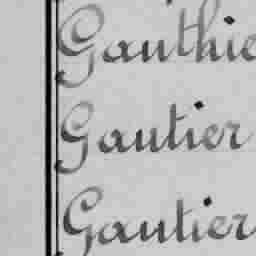 Gauthie
Gautier
Gautier